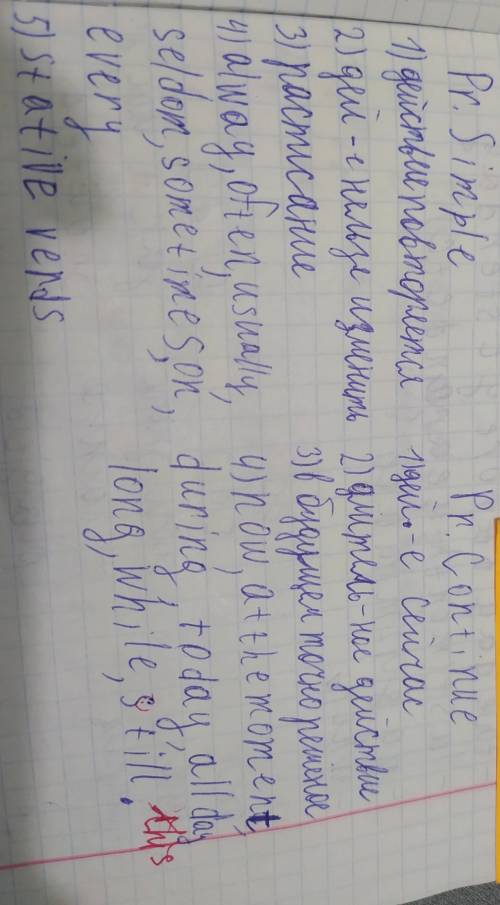 Pr. Simple
1) действие повторяется
2) дей-е нельзя изменить
3) расписание
4) alway, often, usually,
seldom, sometimes, on,
every
5) stative verbs
Pr. Continue
1) дей-е сейчас
2) длитель-ное действие
3) в будущем точно решеное
4) now, at the moment,
during, today, all day
long, while, still.
this